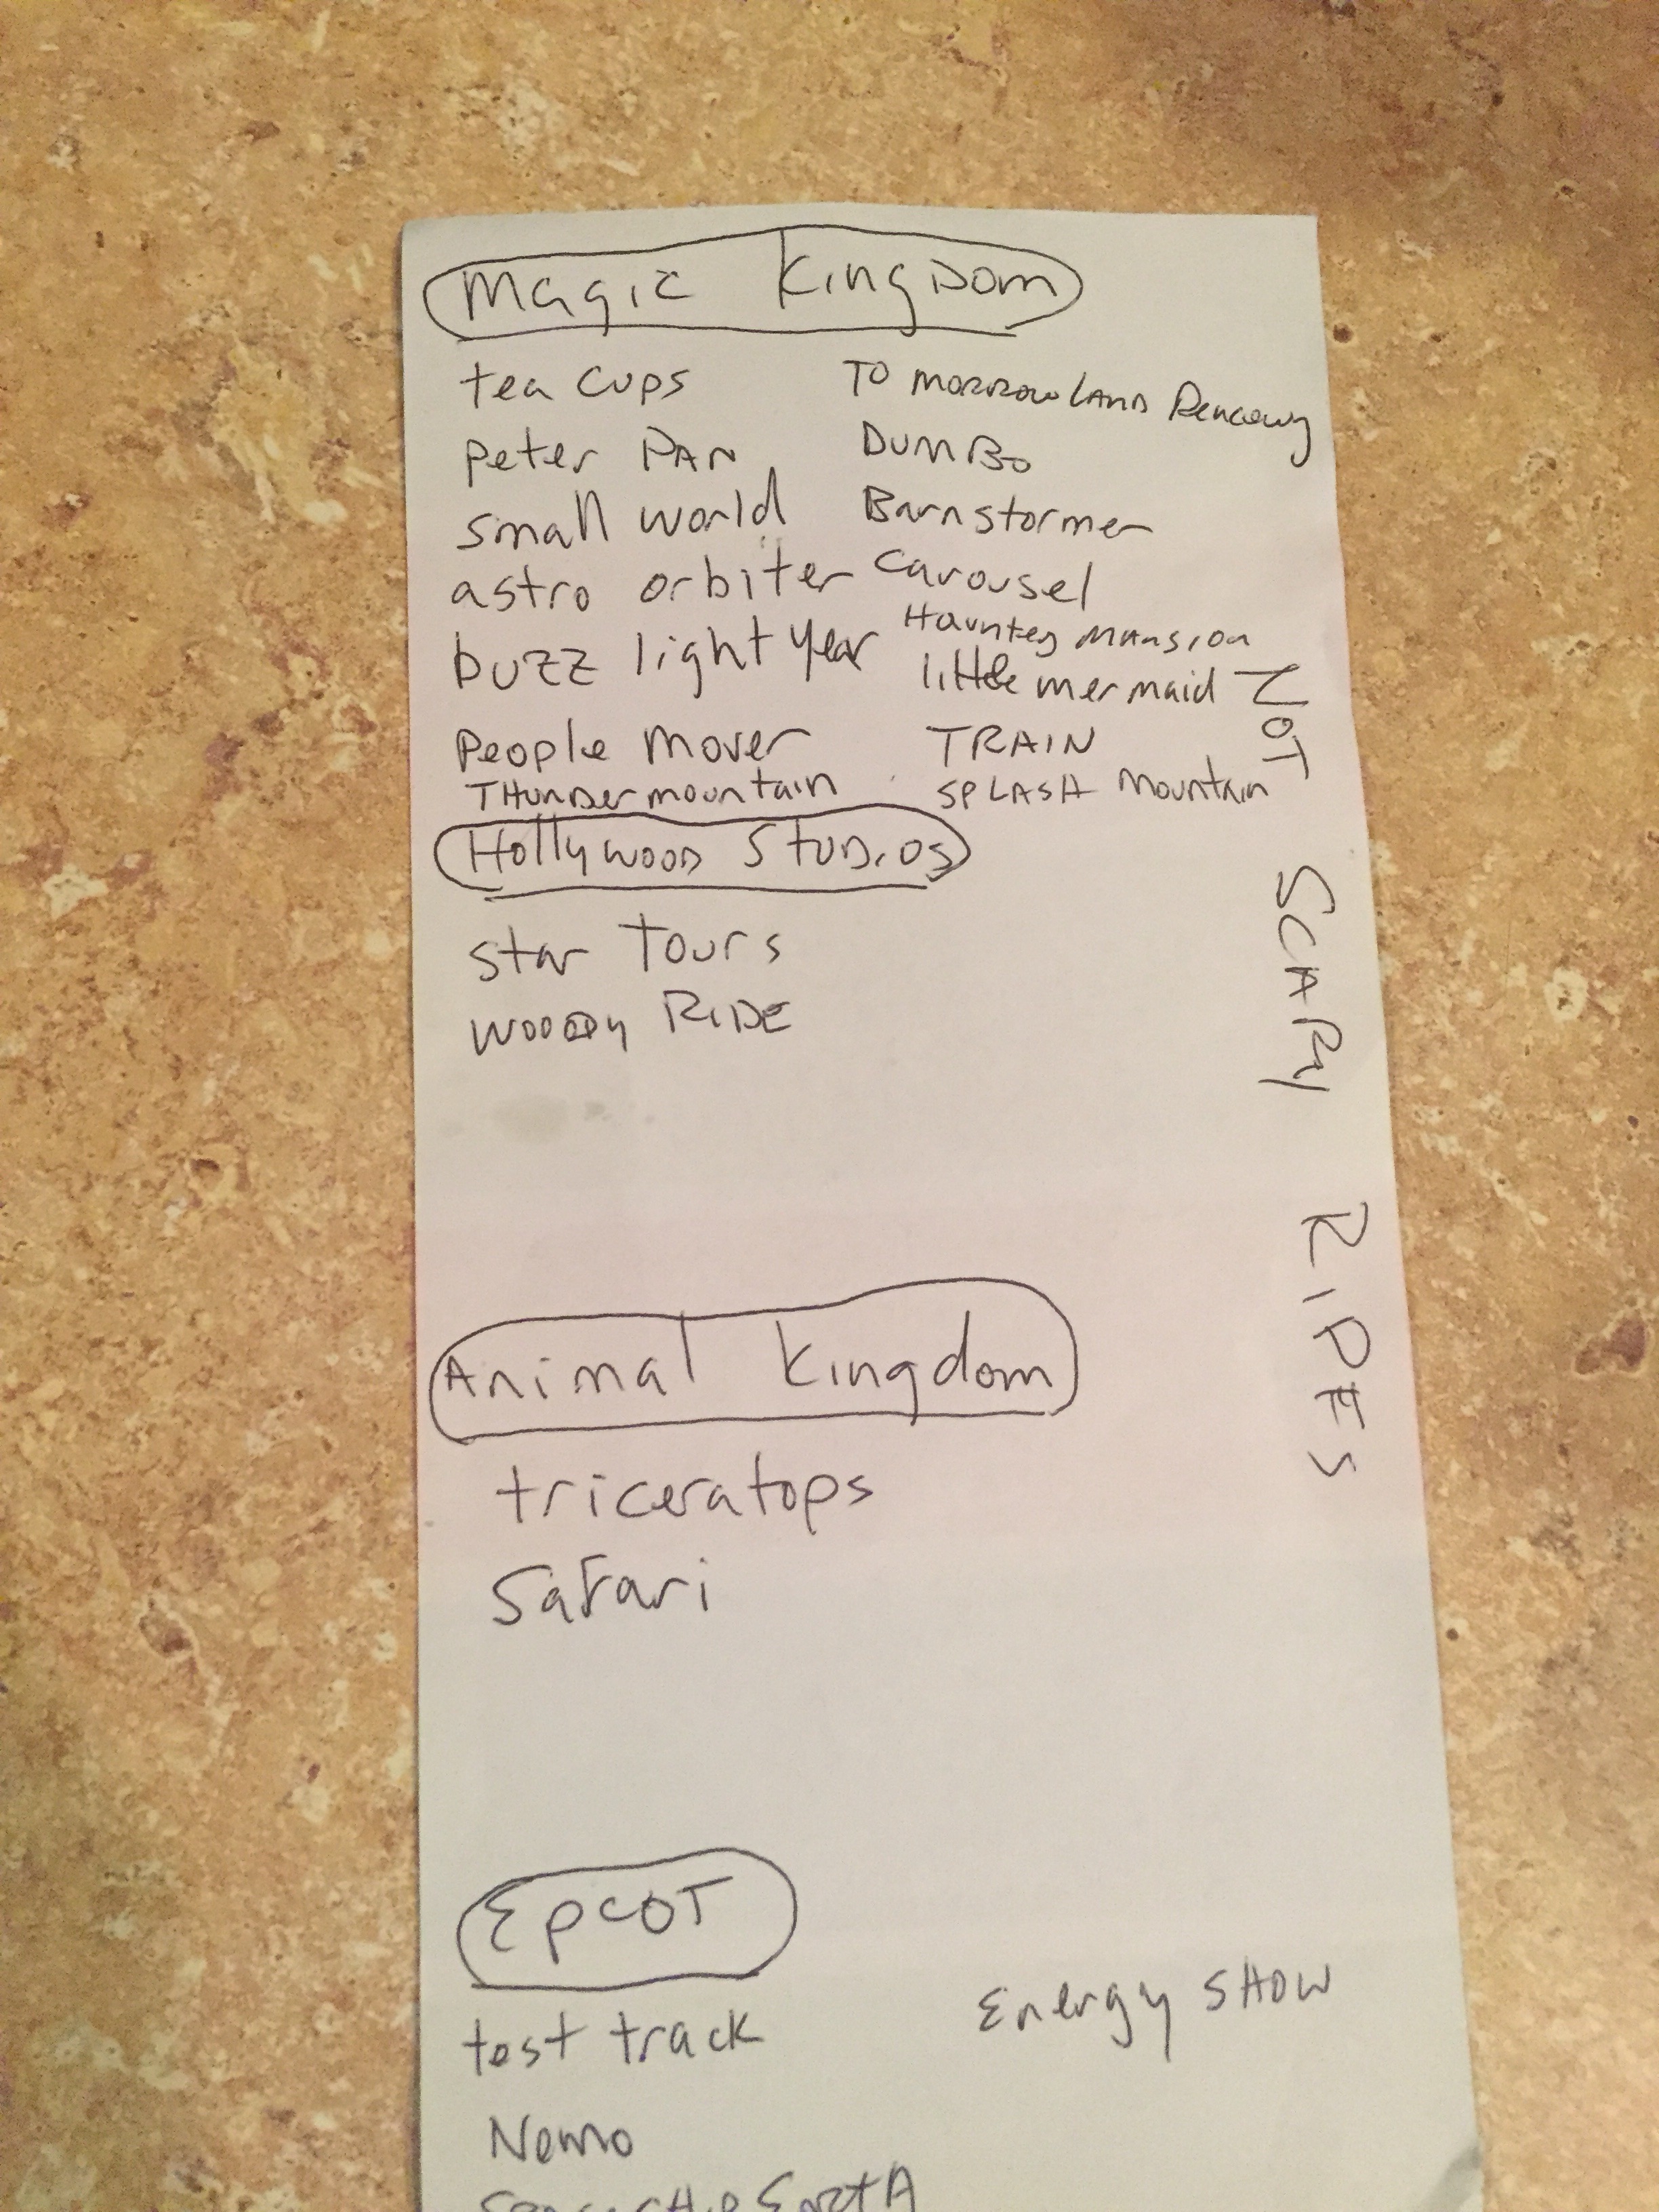 Magic Kingdom
tea cups
Peter PAN
small world
astro orbiter
buzz light year
People Mover
THunDer mountain
TO MORROW LAND
DUMBO
Barnstormer
Carousel
Haunted MAnsion
little mermaid
TRAIN
SPLASH Mountain
Hollywood STUDiOs
star Tours
WOODY RIDE
Animal Kingdom
triceratops
Safari
EPCOT
test track
Nemo
SpaceSHip EartH
Energy SHOW
NOT SCARY RIDES